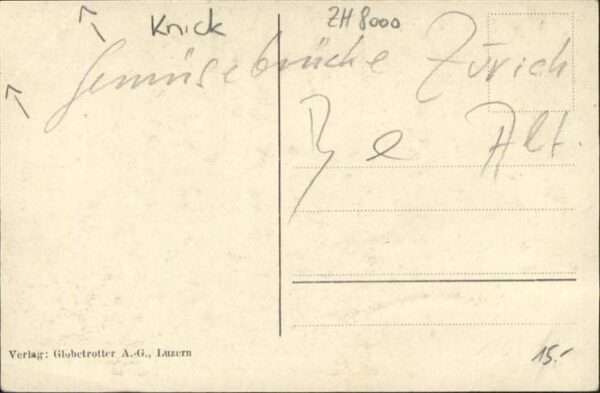 Knick ZH 8000
Gemüsebrücke Zürich
Alt.
Verlag: Globetrotter A.-G., Luzern
15.-